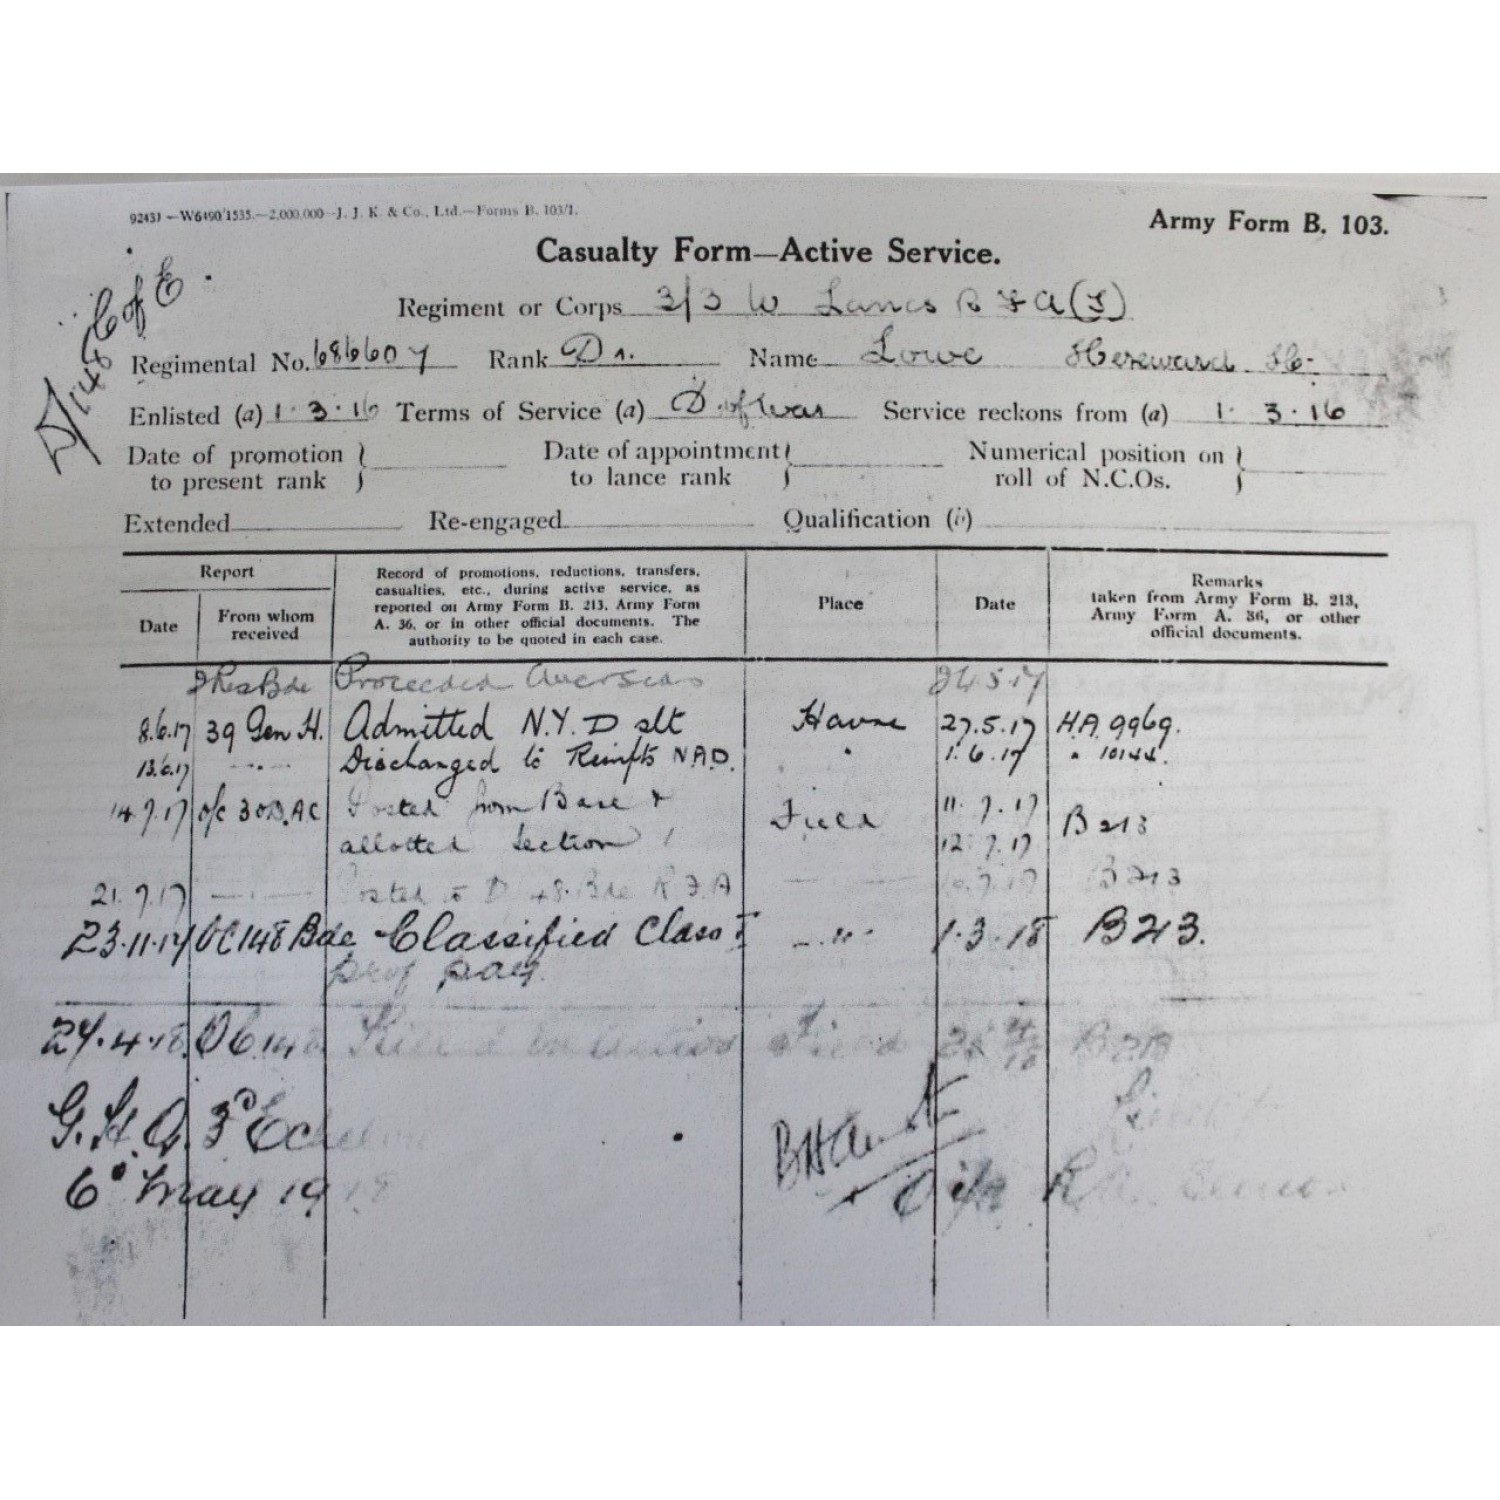 92431—W6490/1535.—2,000,000—J. J. K. & Co., Ltd.—Forms B. 103/1.
Army Form B. 103.
Casualty Form—Active Service.
D/148 C of E.
Regiment or Corps 3/3 W Lancs R F A (T)
Regimental No. 686607 Rank Dr. Name Lowe Hereward H.
Enlisted (a) 1.3.16 Terms of Service (a) D. of War Service reckons from (a) 1.3.16
Date of promotion to present rank Date of appointment to lance rank Numerical position on roll of N.C.Os.
Extended Re-engaged Qualification (b)
Report
Date From whom received
Record of promotions, reductions, transfers, casualties, etc., during active service, as reported on Army Form B. 213, Army Form A. 36, or in other official documents. The authority to be quoted in each case.
Place
Date
Remarks taken from Army Form B. 213, Army Form A. 36, or other official documents.
Bde Proceeded Overseas 24.5.17
8.6.17 39 Gen H. Admitted N.Y.D slt Havre 27.5.17 H.A. 9969.
13.6.17 —"— Discharged to Reinfts N.A.D. " 1.6.17 " 10144.
14.7.17 o/c 30 D.A.C Posted from Base & Field 11.7.17 B 213
allotted Section 1 12.7.17
21.7.17 —"— Posted to D 48. Bde R.F.A B 213
23.11.17 OC 148 Bde Classified Class I —"— 1.3.18 B 213.
prof pay.
27.4.18 OC 148 Killed in Action Field B 213
G.H.Q. 3rd Echelon
6 May 1918